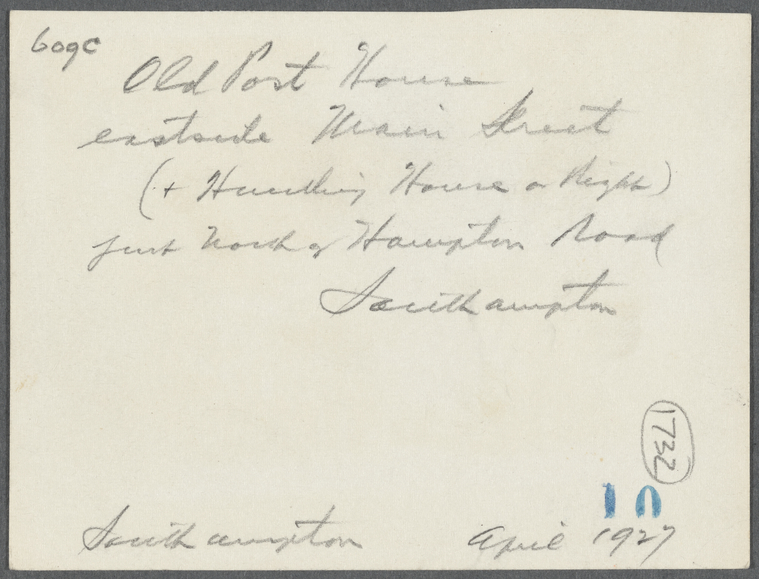 609c
Old Post House
eastside Main Street
(+ Hunting House on Right)
just North of Hampton Road
Southampton
1732
10
Southampton April 1927